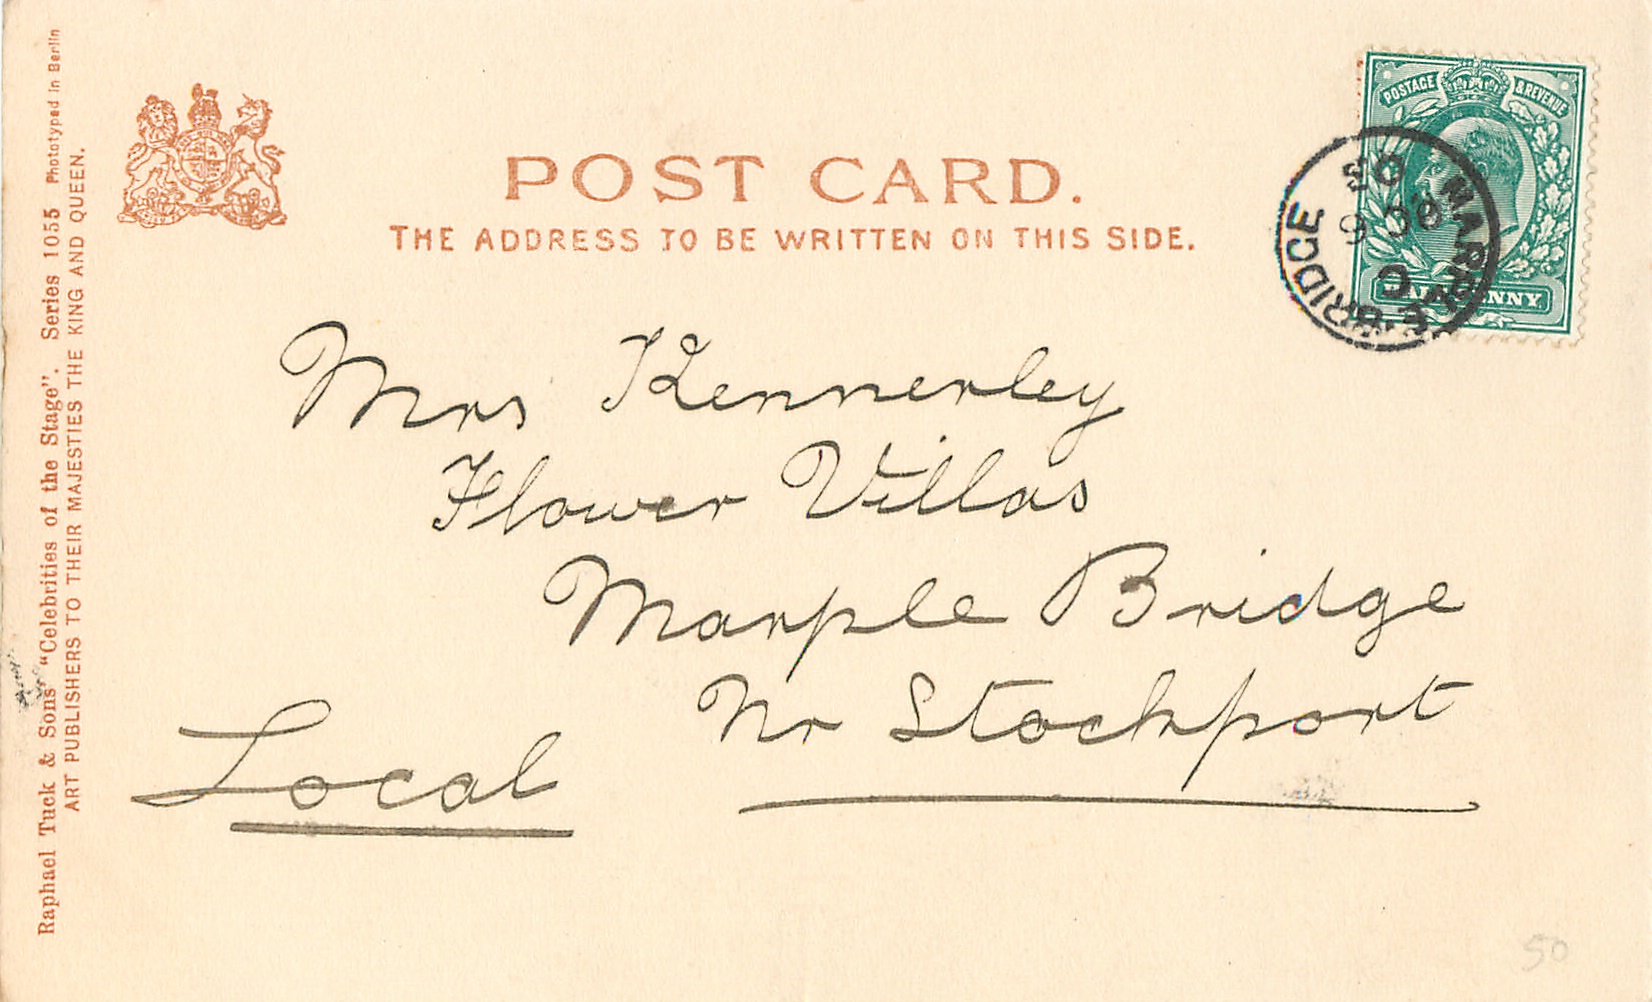 POST CARD.
THE ADDRESS TO BE WRITTEN ON THIS SIDE.
Raphael Tuck & Sons' "Celebrities of the Stage". Series 1055 Phototyped in Berlin
ART PUBLISHERS TO THEIR MAJESTIES THE KING AND QUEEN.
POSTAGE & REVENUE
HALFPENNY
MARPLE BRIDGE
C
OC 6
03
Mrs Kennerley
Flower Villas
Marple Bridge
Nr Stockport
Local
50